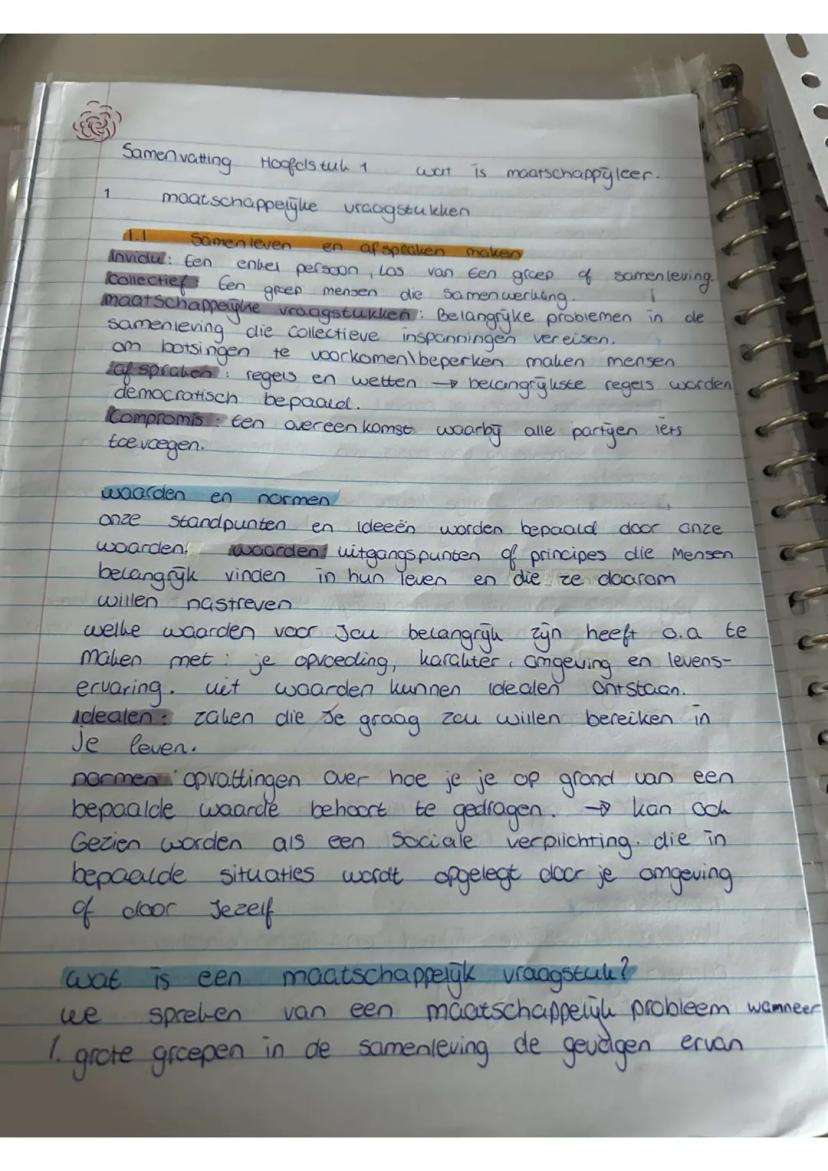 Samenvatting Hoofdstuk 1 wat is maatschappijleer.
1 maatschappelijke vraagstukken
1.1 Samenleven en afspraken maken
Invidu: Een enkel persoon, Los van Een groep of samenleving.
Collectief: Een groep mensen die samenwerking.
maatschappelijke vraagstukken: Belangrijke problemen in de
samenleving die collectieve inspanningen vereisen.
om botsingen te voorkomen\beperken maken mensen
afspraken: regels en wetten → belangrijkste regels worden
democratisch bepaald.
Compromis: Een overeenkomst waarbij alle partijen iets
toevoegen.
waarden en normen
onze standpunten en ideeën worden bepaald door onze
waarden. waarden: uitgangspunten of principes die Mensen
belangrijk vinden in hun leven en die ze daarom
willen nastreven
welke waarden voor Jou belangrijk zijn heeft o.a te
maken met: je opvoeding, karakter, omgeving en levens-
ervaring. uit waarden kunnen idealen ontstaan.
Idealen: zaken die Je graag zou willen bereiken in
je leven.
normen: opvattingen over hoe je je op grond van een
bepaalde waarde behoort te gedragen. → kan ook
Gezien worden als een sociale verplichting. die in
bepaalde situaties wordt opgelegt door je omgeving
of door Jezelf
wat is een maatschappelijk vraagstuk?
we spreken van een maatschappelijk probleem wanneer
1. grote groepen in de samenleving de gevolgen ervan